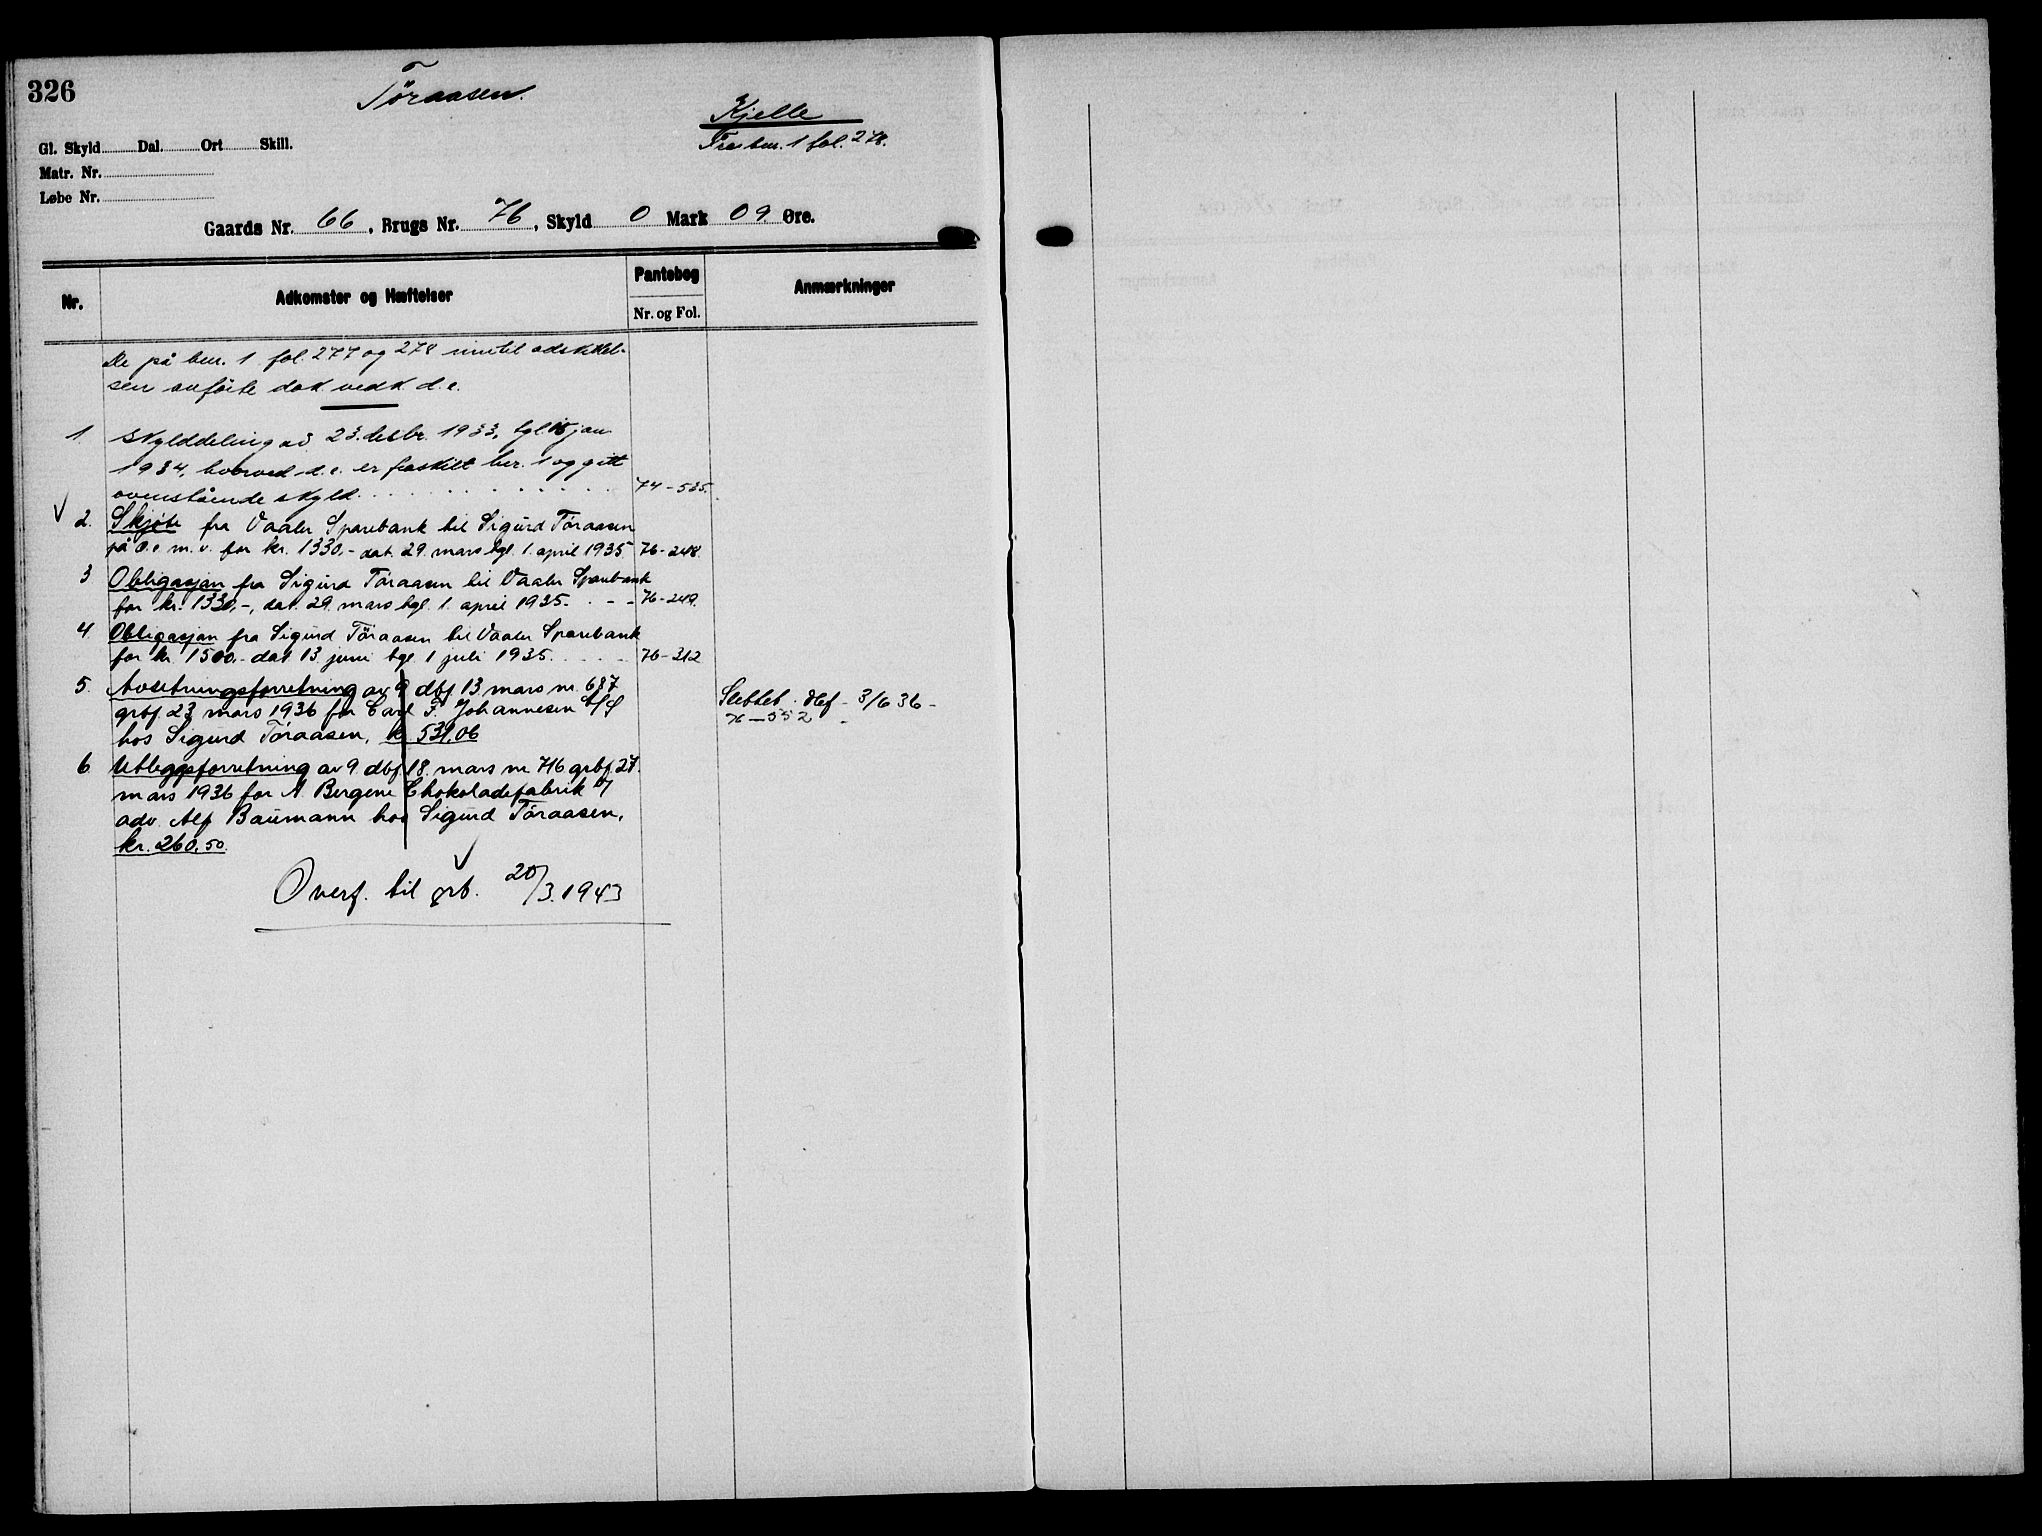 326
Töraasen.
Kjelle
Fra bnr. 1 fol. 278.
Gl. Skyld Dal. Ort Skill.
Matr. Nr.
Løbe Nr.
Gaards Nr. 66, Brugs Nr. 76, Skyld 0 Mark 09 Øre.
Nr. Adkomster og Hæftelser Pantebog Nr. og Fol. Anmærkninger
De på bnr. 1 fol. 277 og 278 inntil adskillel-
sen anførte dok. vedk. d.e.
1. Skylddeling av 23. desbr. 1933, tgl. jan
1934, hvorved d.e. er fraskilt bnr. 1 og gitt
ovenstående skyld. 74-535.
2. Skjøte fra Vaaler Sparebank til Sigurd Töraasen
på d.e. m.v. for kr. 1330.- dat. 29. mars tgl. 1. april 1935 76-248.
3 Obligasjon fra Sigurd Töraasen til Vaaler Sparebank
for kr. 1330,-, dat. 29. mars tgl. 1. april 1935. - - 76-249.
4. Obligasjon fra Sigurd Töraasen til Vaaler Sparebank
for kr. 1500.- dat 13 juni tgl 1 juli 1935. 76-312
5. Avsetningsforretning av 9 dbf. 13. mars nr. 687
grbf 23 mars 1936 for Carl F. Johannesen A/S
hos Sigurd Töraasen, kr. 531,06
Slettet. dbf - 3/6 36 -
76-552
6. Utleggsforretning av 9. dbf. 18. mars nr 716 grbf. 27.
mars 1936 for A. Bergene Chokoladefabrik v/
adv. Alf Baumann hos Sigurd Töraasen,
kr. 260,50.
Overf. til grb. 20/3.1943